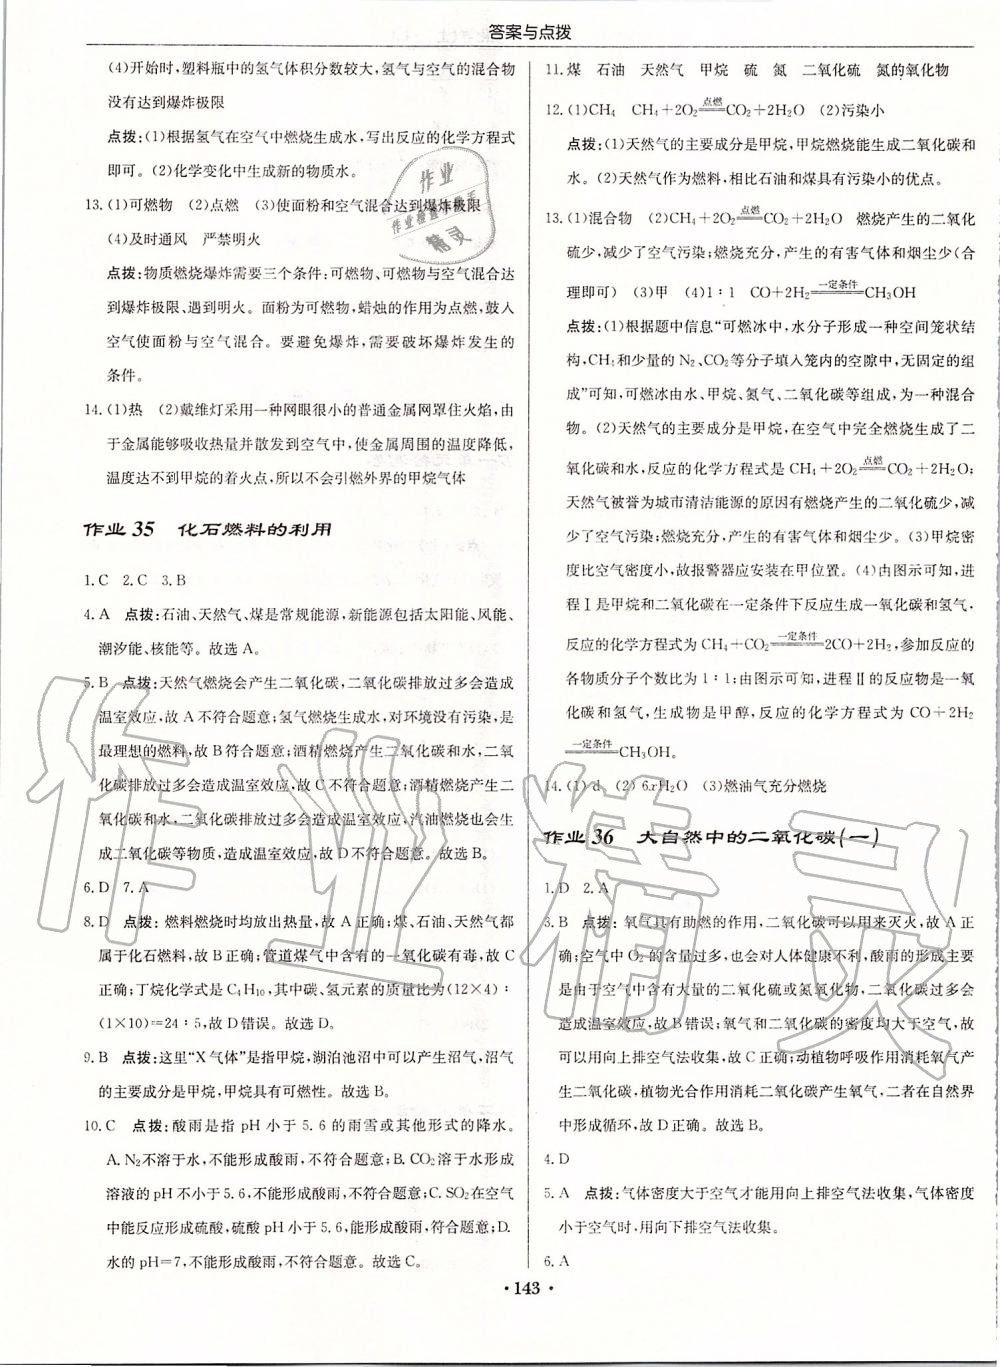 答案与点拨
(4)开始时,塑料瓶中的氢气体积分数较大,氢气与空气的混合物
没有达到爆炸极限
点拨:(1)根据氢气在空气中燃烧生成水,写出反应的化学方程式
即可。(2)化学变化中生成新的物质水。
13.(1)可燃物 (2)点燃 (3)使面粉和空气混合达到爆炸极限
(4)及时通风 严禁明火
点拨:物质燃烧爆炸需要三个条件:可燃物、可燃物与空气混合达
到爆炸极限、遇到明火。面粉为可燃物,蜡烛的作用为点燃,鼓入
空气使面粉与空气混合。要避免爆炸,需要破坏爆炸发生的
条件。
14.(1)热 (2)戴维灯采用一种网眼很小的普通金属网罩住火焰,由
于金属能够吸收热量并散发到空气中,使金属周围的温度降低,
温度达不到甲烷的着火点,所以不会引燃外界的甲烷气体
作业 35 化石燃料的利用
1.C 2.C 3.B
4.A 点拨:石油、天然气、煤是常规能源,新能源包括太阳能、风能、
潮汐能、核能等。故选 A。
5.B 点拨:天然气燃烧会产生二氧化碳,二氧化碳排放过多会造成
温室效应,故 A 不符合题意;氢气燃烧生成水,对环境没有污染,是
最理想的燃料,故 B 符合题意;酒精燃烧产生二氧化碳和水,二氧
化碳排放过多会造成温室效应,故 C 不符合题意;酒精燃烧产生二
氧化碳和水,二氧化碳排放过多会造成温室效应,汽油燃烧也会生
成二氧化碳等物质,造成温室效应,故 D 不符合题意。故选 B。
6.D 7.A
8.D 点拨:燃料燃烧时均放出热量,故 A 正确;煤、石油、天然气都
属于化石燃料,故 B 正确;管道煤气中含有的一氧化碳有毒,故 C
正确;丁烷化学式是 C₄H₁₀,其中碳、氢元素的质量比为(12×4):
(1×10)=24:5,故 D 错误。故选 D。
9.B 点拨:这里“X 气体”是指甲烷,湖泊池沼中可以产生沼气,沼气
的主要成分是甲烷,甲烷具有可燃性。故选 B。
10.C 点拨:酸雨是指 pH 小于 5.6 的雨雪或其他形式的降水。
A.N₂不溶于水,不能形成酸雨,不符合题意;B.CO₂溶于水形成
溶液的 pH 不小于 5.6,不能形成酸雨,不符合题意;C.SO₂在空气
中能反应形成硫酸,硫酸 pH 小于 5.6,能形成酸雨,符合题意;D.
水的 pH=7,不能形成酸雨,不符合题意。故选 C。
11.煤 石油 天然气 甲烷 硫 氮 二氧化硫 氮的氧化物
12.(1)CH₄ CH₄+2O₂ 点燃 CO₂+2H₂O (2)污染小
点拨:(1)天然气的主要成分是甲烷,甲烷燃烧能生成二氧化碳和
水。(2)天然气作为燃料,相比石油和煤具有污染小的优点。
13.(1)混合物 (2)CH₄+2O₂ 点燃 CO₂+2H₂O 燃烧产生的二氧化
硫少,减少了空气污染;燃烧充分,产生的有害气体和烟尘少(合
理即可) (3)甲 (4)1:1 CO+2H₂ 一定条件 CH₃OH
点拨:(1)根据题中信息“可燃冰中,水分子形成一种空间笼状结
构,CH₄和少量的 N₂、CO₂等分子填入笼内的空隙中,无固定的组
成”可知,可燃冰由水、甲烷、氮气、二氧化碳等组成,为一种混合
物。(2)天然气的主要成分是甲烷,在空气中完全燃烧生成了二
氧化碳和水,反应的化学方程式是 CH₄+2O₂ 点燃 CO₂+2H₂O;
天然气被誉为城市清洁能源的原因有燃烧产生的二氧化硫少,减
少了空气污染;燃烧充分,产生的有害气体和烟尘少。(3)甲烷密
度比空气密度小,故报警器应安装在甲位置。(4)由图示可知,进
程Ⅰ是甲烷和二氧化碳在一定条件下反应生成一氧化碳和氢气,
反应的化学方程式为 CH₄+CO₂ 一定条件 2CO+2H₂,参加反应的
各物质分子个数比为 1:1;由图示可知,进程Ⅱ的反应物是一氧
化碳和氢气,生成物是甲醇,反应的化学方程式为 CO+2H₂
一定条件 CH₃OH。
14.(1)d (2)6xH₂O (3)燃油气充分燃烧
作业 36 大自然中的二氧化碳(一)
1.D 2.A
3.B 点拨:氧气具有助燃的作用,二氧化碳可以用来灭火,故 A 正
确;空气中 O₂的含量过多,也会对人体健康不利,酸雨的形成主要
是由于空气中含有大量的二氧化硫或氮氧化物,二氧化碳过多会
造成温室效应,故 B 错误;氧气和二氧化碳的密度均大于空气,故
可以用向上排空气法收集,故 C 正确;动植物呼吸作用消耗氧气产
生二氧化碳,植物光合作用消耗二氧化碳产生氧气,二者在自然界
中形成循环,故 D 正确。故选 B。
4.D
5.A 点拨:气体密度大于空气才能用向上排空气法收集,气体密度
小于空气时,用向下排空气法收集。
6.A
·143·
作业
精灵
作业精灵